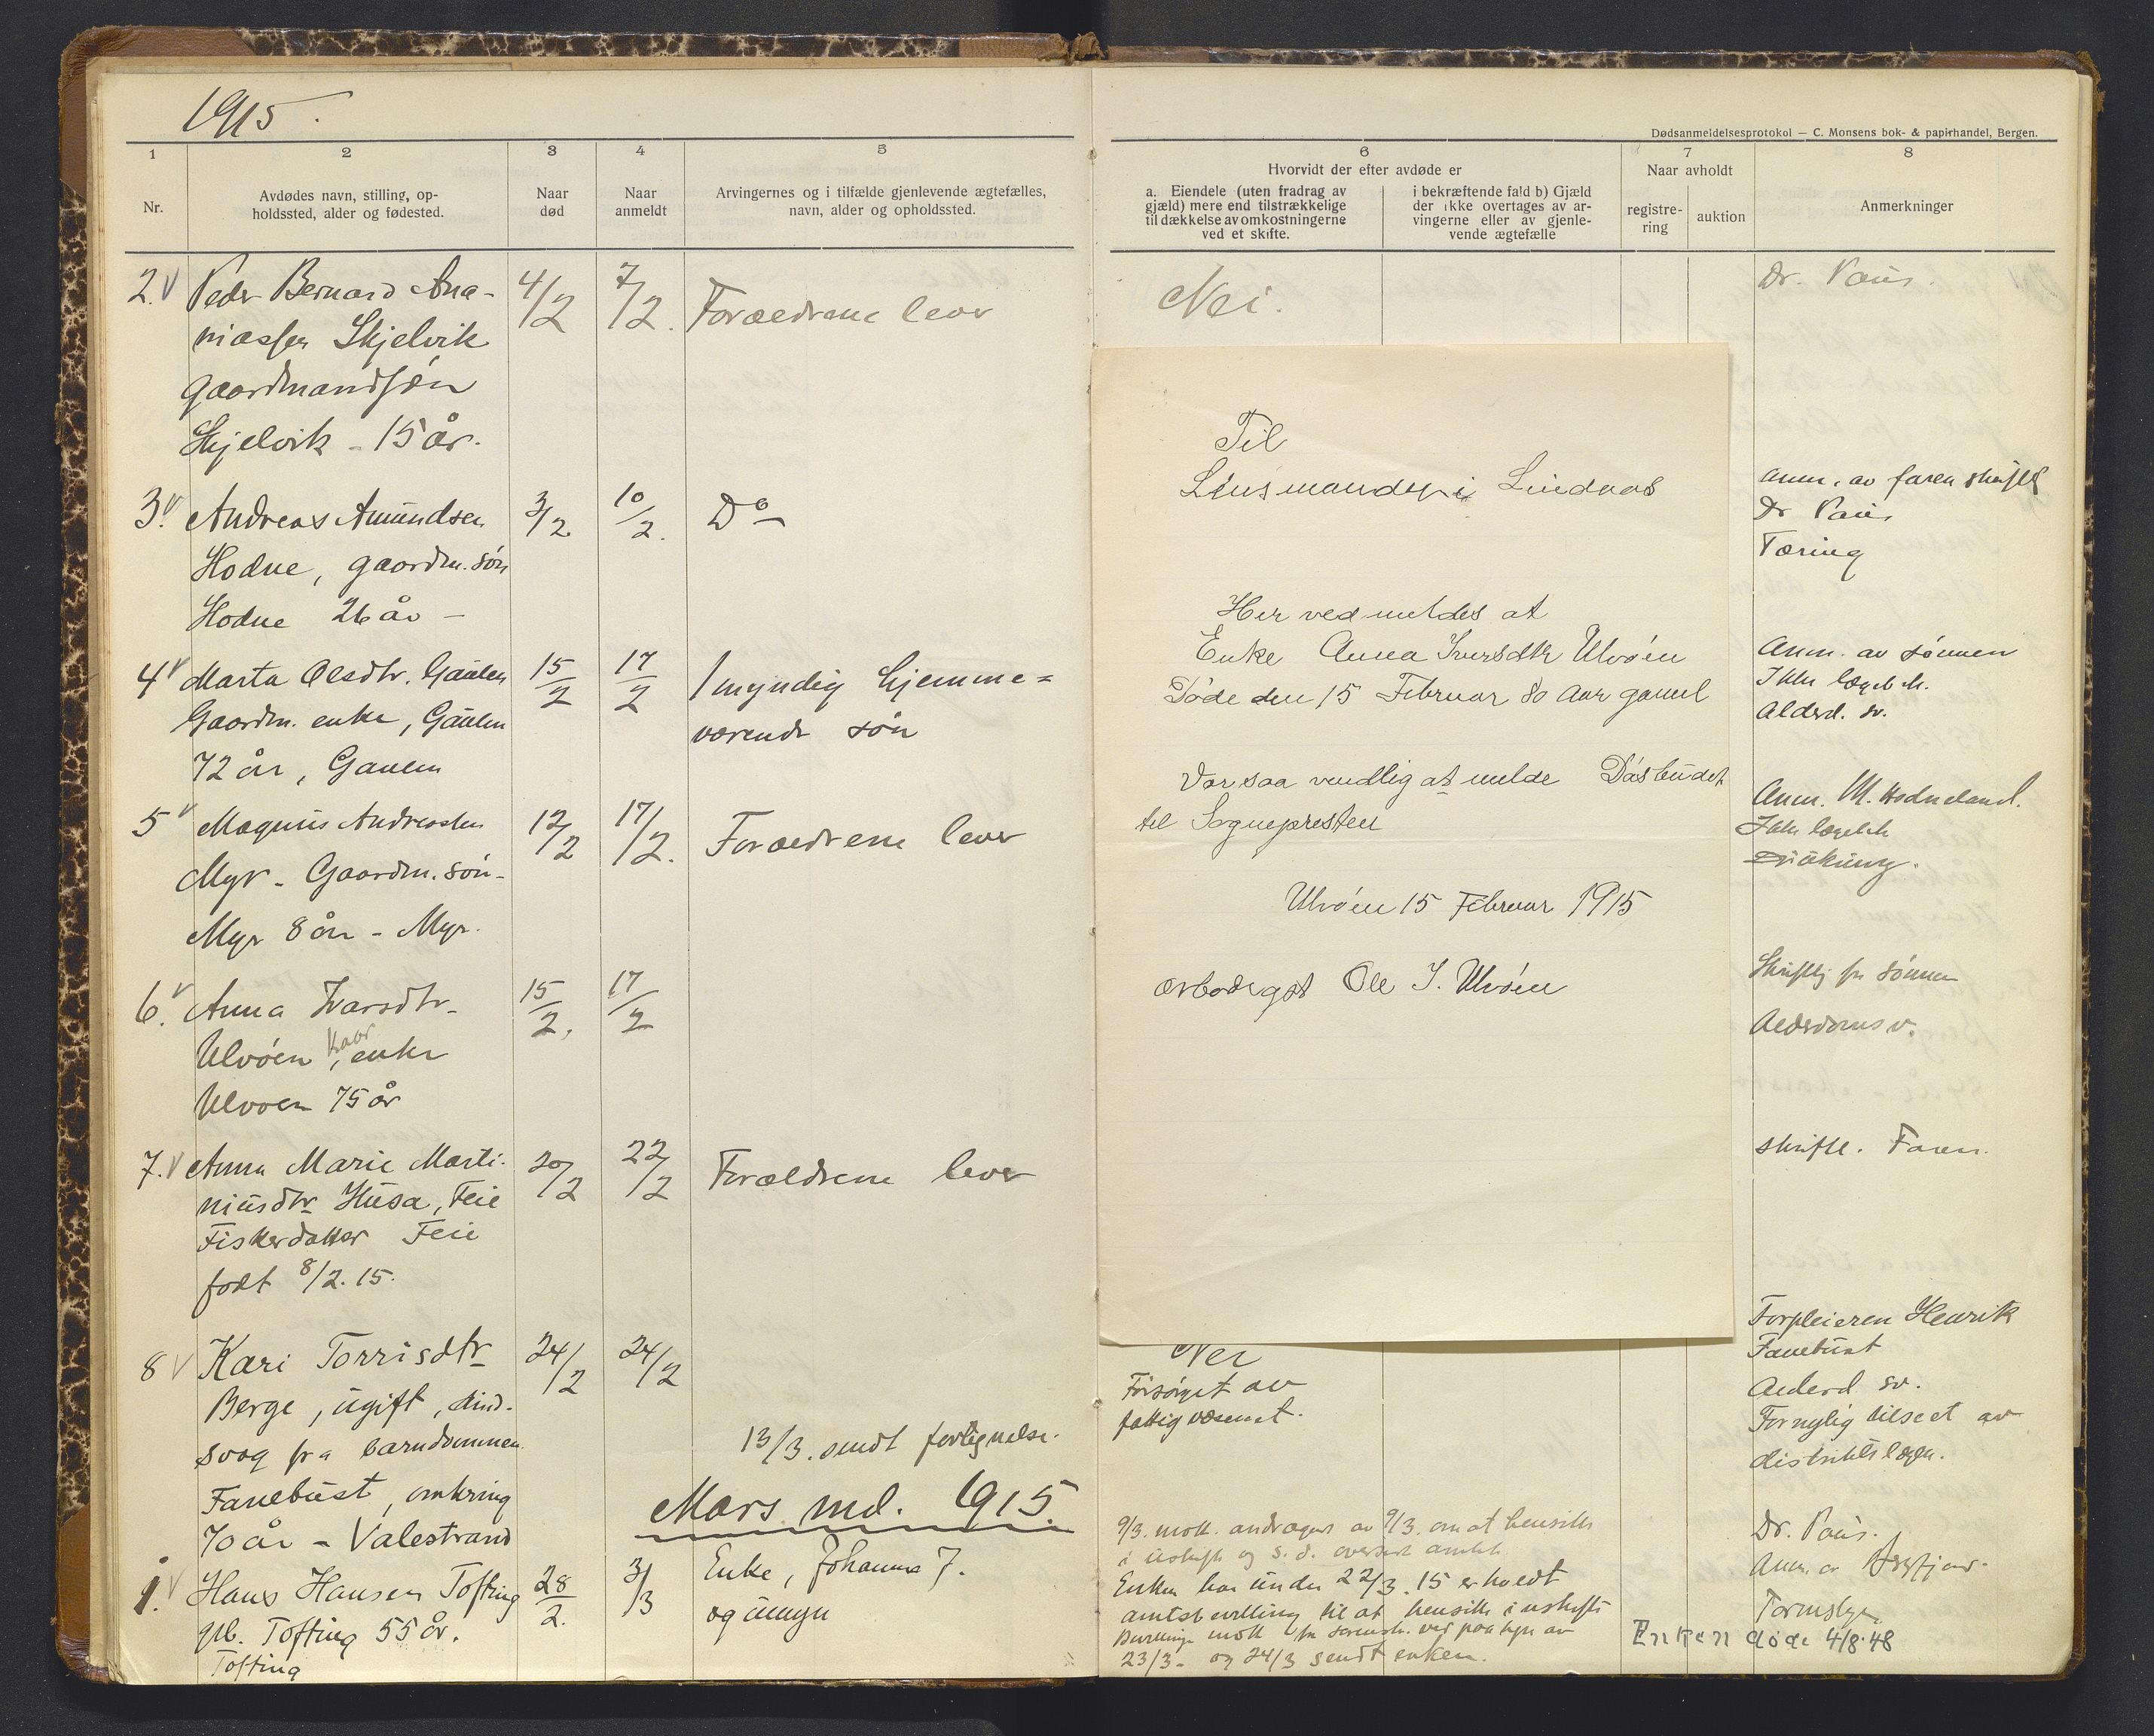 1915.
Dødsanmeldelsesprotokol — C. Monsens bok- & papirhandel, Bergen.
1
2
3
4
5
6
7
8
Nr.
Avdødes navn, stilling, op-
holdssted, alder og fødested.
Naar
død
Naar
anmeldt
Arvingernes og i tilfælde gjenlevende ægtefælles,
navn, alder og opholdssted.
Hvorvidt der efter avdøde er
a. Eiendele (uten fradrag av
gjæld) mere end tilstrækkelige
til dækkelse av omkostningerne
ved et skifte.
i bekræftende fald b) Gjæld
der ikke overtages av ar-
vingerne eller av gjenle-
vende ægtefælle
Naar avholdt
registre-
ring
auktion
Anmerkninger
2. Peder Bernard Ana-
niassen Skjelvik
gaardmandsøn
Skjelvik - 15 år.
4/2
7/2.
Forældrene lever
Nei.
Dr. Paus.
3. Andreas Amundsen
Hodne, gaardm. søn
Hodne 26 år -
3/2
10/2.
Do
Anm. av faren skriftl
Dr Paus
Tæring
4 Marta Olsdtr. Gaulen
Gaardm. enke, Gaulen
72 år, Gaulen
15/2
17/2
1 myndig hjemme=
værende søn
Anm. av sønnen
Ikke lægeb.
Alderd. sv.
5 Magnus Andreassen
Myr - Gaardm. søn -
Myr 8 år - Myr.
12/2
17/2.
Forældrene lever
Anm. M. Hodneland.
Ikke lægeb
6. Anna Ivarsdtr
Ulvøen, kaar enke
Ulvøen 75 år
15/2,
17/2
Skriftlig fra sønnen
Alderdoms v.
7. Anna Marie Marti-
niusdtr Husa, Feie
Fiskerdatter Feie
født 8/2. 15.
20/2
22/2
Forældrene lever
skriftl. Faren.
8 Kari Torrisdtr
Berge, ugift, sind-
svag fra barndommen
Fanebust, omkring
70 år - Valestrand
24/2
24/2
Nei
Forsørget av
fattigvæsenet.
Forpleieren Henrik
Fanebust
Alderd. sv.
Fornylig tilseet av
distriktslægen.
13/3. sendt fortegnelse.
Mars md. 1915.
1. Hans Hansen Tofting
gb. Tofting 55 år.
Tofting
28/2.
3/3
Enke, Johanna J.
og umyn
9/3. mott. andragende av 9/3. om at hensitte
i uskifte og s. d. oversendt amtet
Enken har under 22/3. 15 erholdt
amtsbevilling til at hensitte i uskifte
Bevillingen mott fra sorensk. ved paategn av
23/3 - og 24/3 sendt enken.
Dr. Paus.
Enken døde 4/8-48
Til
Lensmanden i Lindaas
Her ved meldes at
Enke Anna Iversdtr Ulvøen
Døde den 15 Februar 80 Aar gamel
Vær saa vendlig at melde Dødsbudet
til Sognepresten
Ulvøen 15 Februar 1915
ærbødigst Ole I. Ulvøen